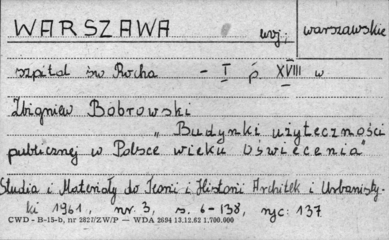 WARSZAWA woj; warszawskie
szpital św Rocha - I p XVIII w
Zbigniew Bobrowski
„Budynki użyteczności
publicznej w Polsce wieku Oświecenia"
Studia i Materiały do Teorii i Historii Architek i Urbanisty-
ki 1961, nr. 3, s. 6-138, ryc: 137
CWD - B-15-b, nr 3827/ZW/P — WDA 2694 13.12.62 1.700.000